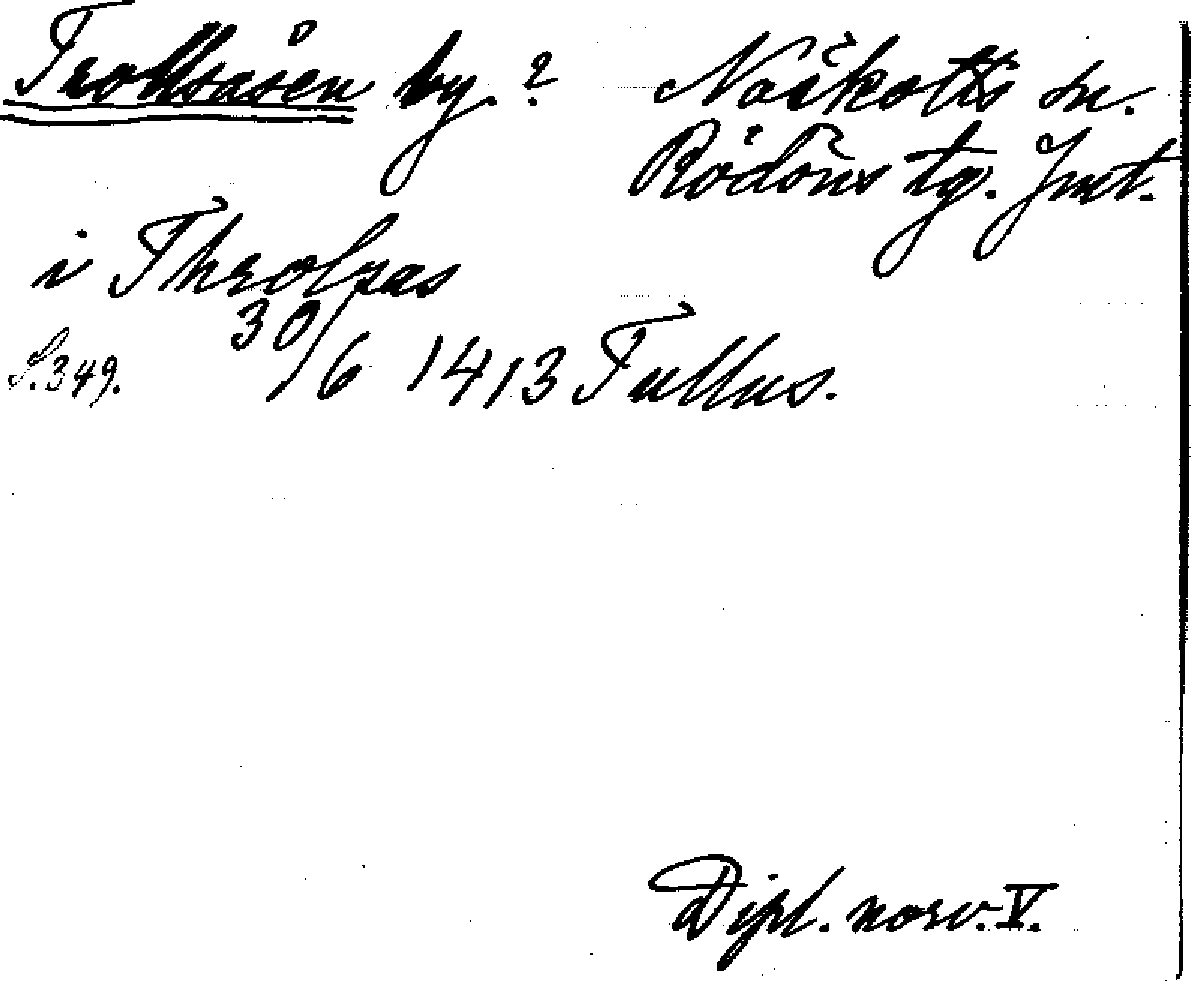 Trollsåsen by. ? Näskotts sn.
Rödöns tg. Jmt.
i Throlsas
S. 349. 30/6 1413 Fullus.
Dipl. norv. V.